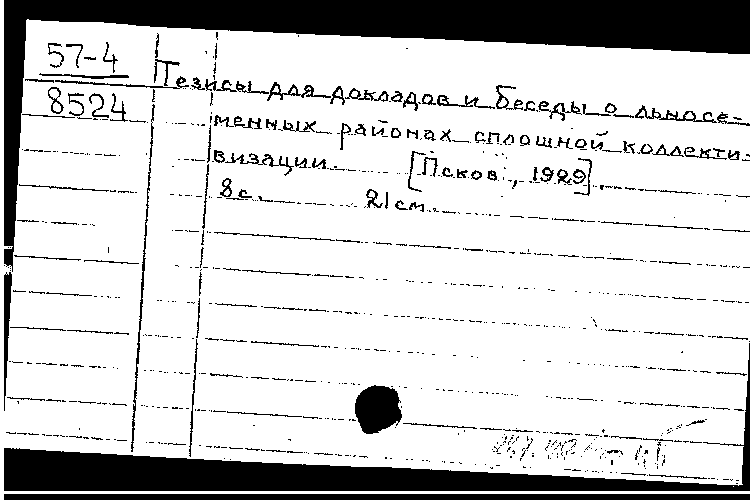 57-4
8524
Тезисы для докладов и беседы о льносе-
менных районах сплошной коллекти-
визации. [Псков, 1929].
8 с. 21 см.